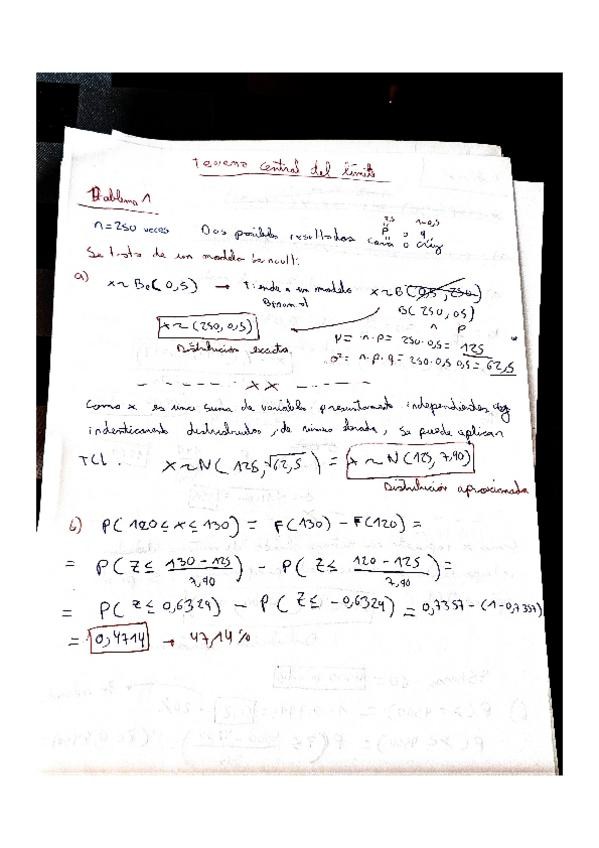 Teorema central del límite
Problema 1
n=250 veces Dos posibles resultados cara o cruz
0,5 1-0,5
p q
Se trata de un modelo Bernoulli:
a) x~Be(0,5) → tiende a un modelo Binomial x~B(0,5, 250)
B(250, 0,5)
n p
x~(250, 0,5)
Distribución exacta
μ = n·p = 250·0,5 = 125
σ² = n·p·q = 250·0,5 0,5 = 62,5
Como x es una suma de variables presuntamente independientes
indenticamente distribuidas, de misma , se puede aplicar
TCL. x~N(125, √62,5) = x~N(125, 7,90)
Distribución aproximada
b) P(120 ≤ x ≤ 130) = F(130) - F(120) =
= P(Z ≤ 130-125 / 7,90) - P(Z ≤ 120-125 / 7,90) =
= P(Z ≤ 0,6329) - P(Z ≤ -0,6329) = 0,7357 - (1-0,7357)
= 0,4714 → 47,14%